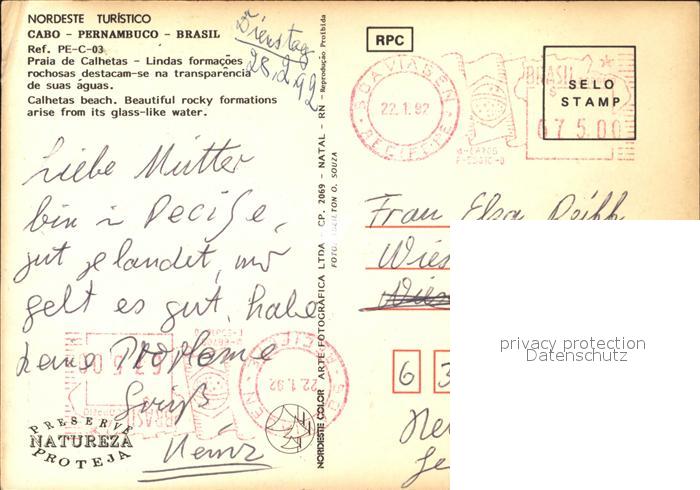 NORDESTE TURÍSTICO
CABO - PERNAMBUCO - BRASIL
Ref. PE-C-03
Praia de Calhetas - Lindas formações
rochosas destacam-se na transparência
de suas águas.
Calhetas beach. Beautiful rocky formations
arise from its glass-like water.
Dienstag
28.2.92
Liebe Mutter
bin in Recife,
gut gelandet, mir
geht es gut, habe
keine Probleme
Gruß
Heinz
PRESERVE
NATUREZA
PROTEJA
NORDESTE COLOR - ARTE FOTOGRÁFICA LTDA - CP. 2069 - NATAL - RN - Reprodução Proibida
FOTO: O. SOUZA
RPC
BOA VIAGEM
22.1.92
RECIFE-PE
BRASIL
SELO
STAMP
675.00
22.1.92
Frau Elsa
Wies
6 3
privacy protection
Datenschutz